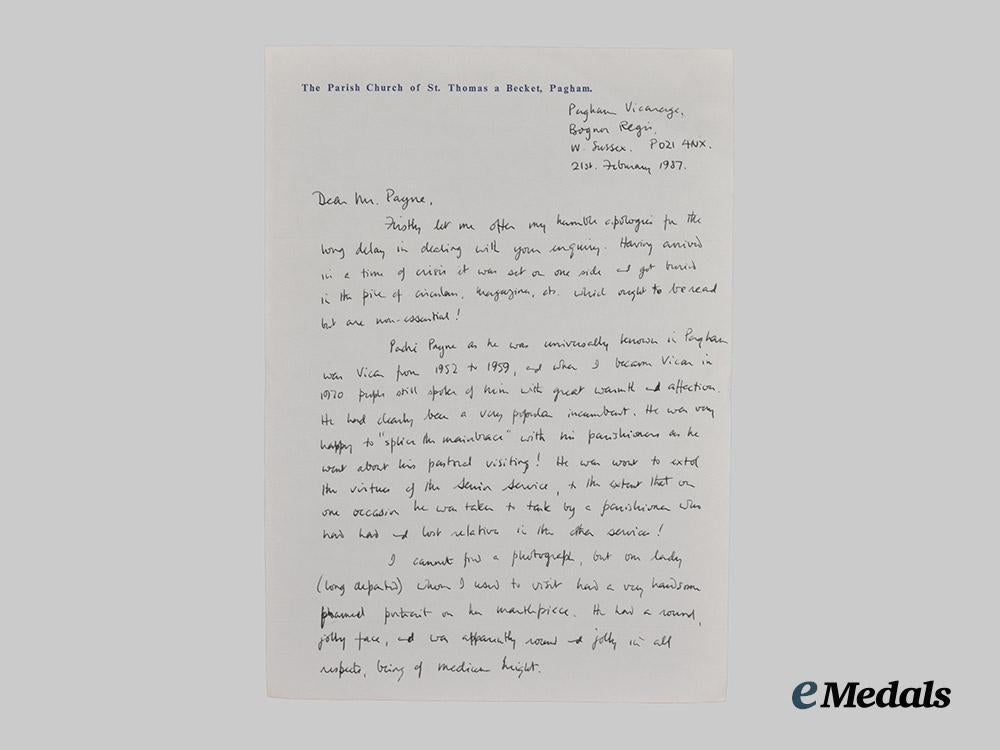 The Parish Church of St. Thomas a Becket, Pagham.
Pagham Vicarage,
Bognor Regis,
W. Sussex. PO21 4NX.
21st. February 1987.
Dear Mr. Payne,
Firstly let me offer my humble apologies for the
long delay in dealing with your enquiry. Having arrived
in a time of crisis it was set on one side and got buried
in the pile of circulars, magazines, etc. which ought to be read
but are non-essential!
Padré Payne as he was universally known in Pagham
was Vicar from 1952 to 1959, and when I became Vicar in
1970 people still spoke of him with great warmth and affection.
He had clearly been a very popular incumbent. He was very
happy to "splice the mainbrace" with his parishioners as he
went about his pastoral visiting! He was wont to extol
the virtues of the Senior Service, to the extent that on
one occasion he was taken to task by a parishioner who
had had and lost relative in the other service!
I cannot find a photograph, but one lady
(long departed) whom I used to visit had a very handsome
framed portrait on her mantlepiece. He had a round,
jolly face, and was apparently round and jolly in all
respects, being of medium height.
eMedals